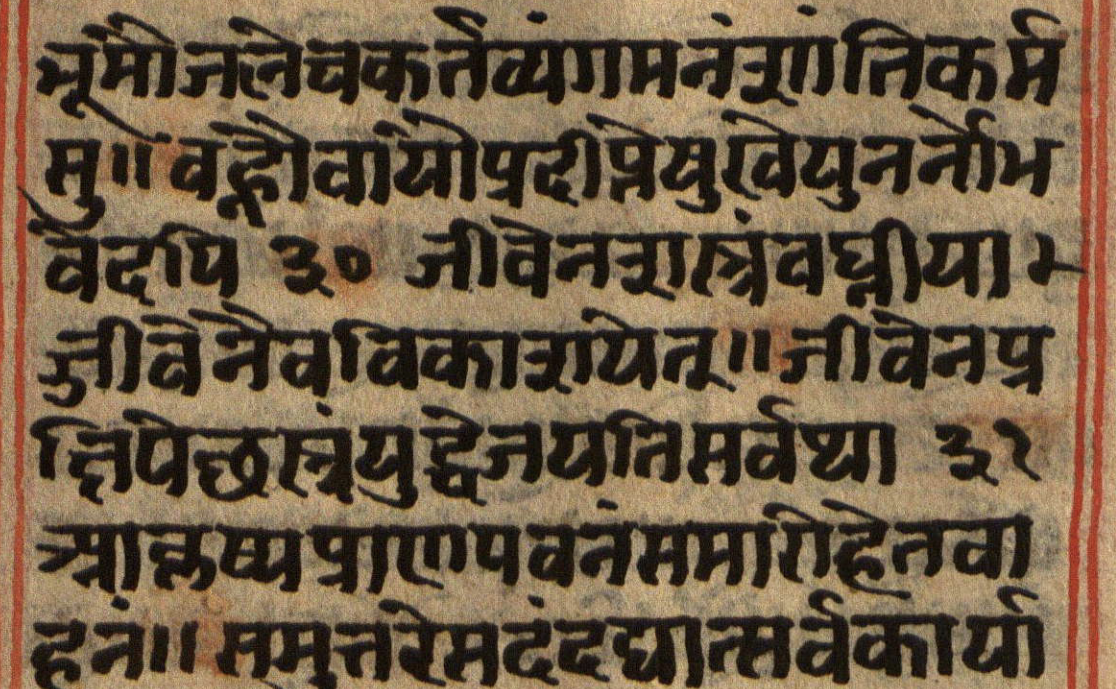 भूमौजलेचकर्तव्यंगमनंशांतिकर्म
सु॥वह्नौवायौप्रदीप्तेषुखेपुनर्नोभ
वेदपि ३० जीवेनशस्त्रंवध्नीया
ज्जीवेनैवविकाशयेत्॥जीवेनप्र
क्षिपेछस्त्रंयुद्धेजयतिसर्वथा ३२
आकृष्यप्राणपवनंसमारोहेतवा
हनं॥समुत्तरेसदंदद्यात्सर्वकार्या